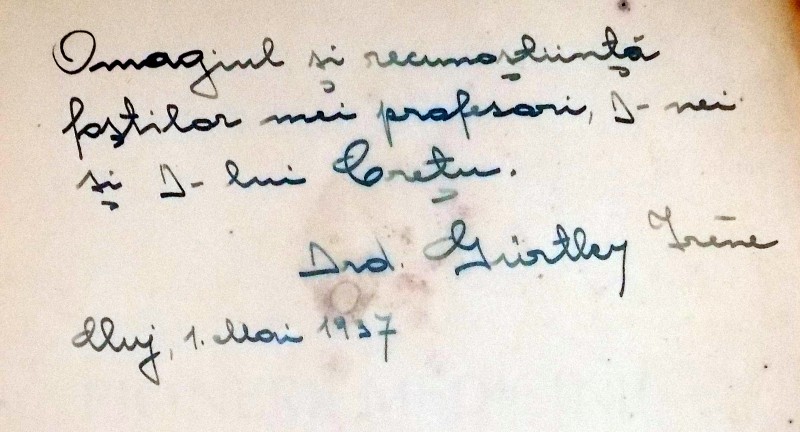 Omagiul și recunoștiință
foștilor mei profesori, D-nei
și D-lui Crețu.
Drd. Gürtley Irène
Cluj, 1. Mai 1937